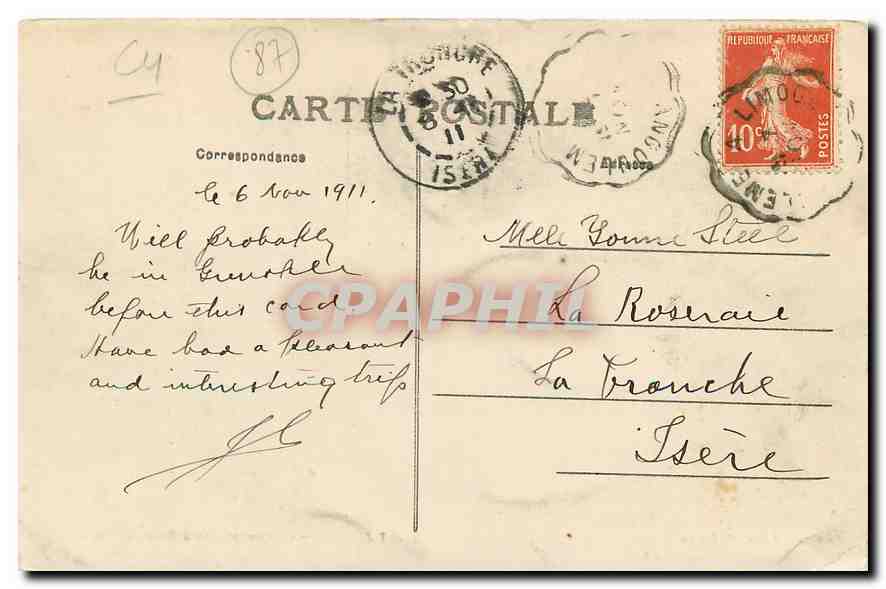 C4
87
CARTE POSTALE
Correspondance
Adresse
LA TRONCHE
ISERE
REPUBLIQUE FRANCAISE
10c
POSTES
LIMOGES
ANGOULEM
le 6 Nov 1911.
Will probably
be in Grenoble
before this card.
Have had a pleasant
and interesting trip
Melle Yonne Steel
La Roseraie
La Tronche
Isère
CPAPHIL